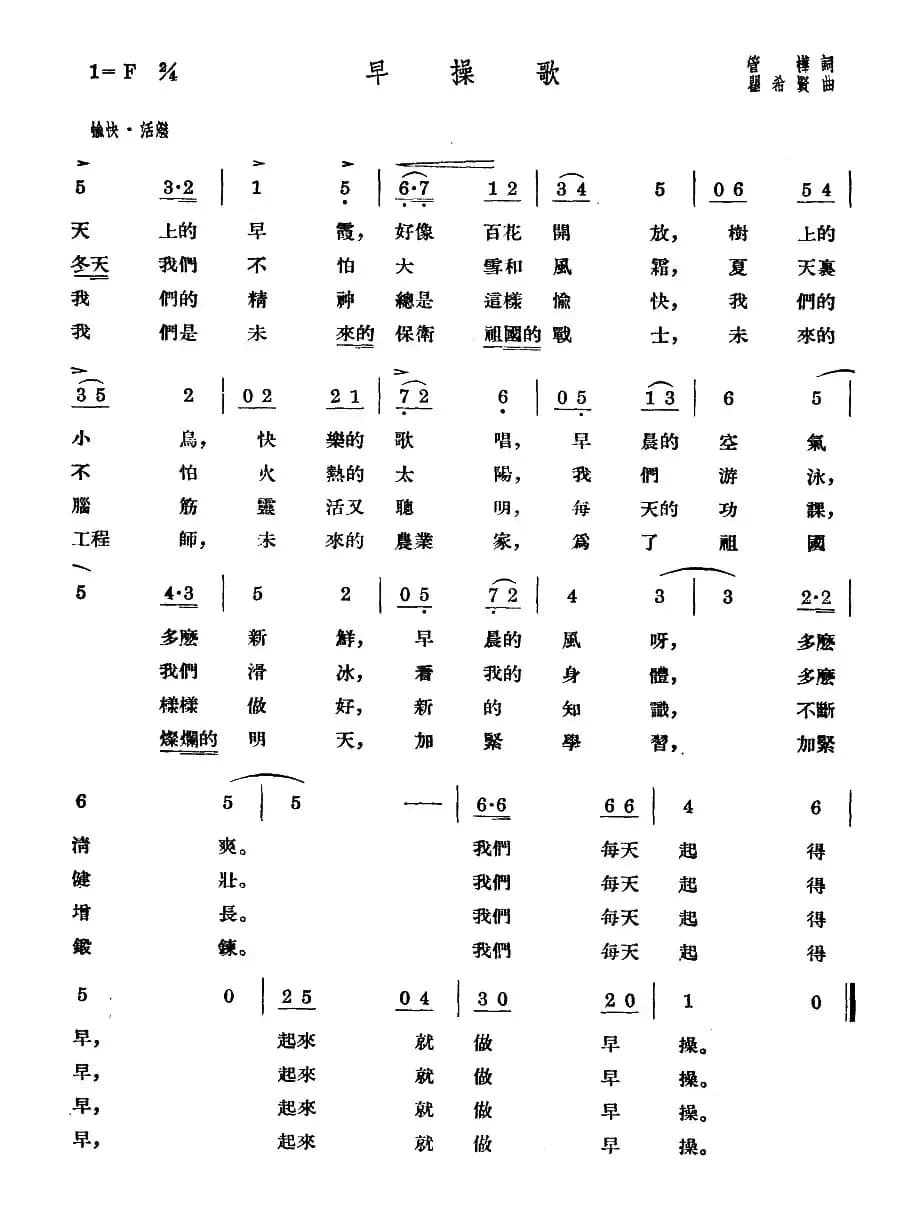 1=F 2/4 早操歌 管樺詞
瞿希賢曲
愉快·活潑
5 3·2 | 1 5 | 6·7 1 2 | 3 4 5 | 0 6 5 4 |
天 上的 早 霞，好像 百花 開 放，樹 上的
冬天 我們 不 怕 大 雪和 風 霜，夏 天裏
我 們的 精 神 總是 這樣 愉 快，我 們的
我 們是 未 來的 保衛 祖國的 戰 士，未 來的
3 5 2 | 0 2 2 1 | 7 2 6 | 0 5 1 3 | 6 5 |
小 鳥，快 樂的 歌 唱，早 晨的 空 氣
不 怕 火 熱的 太 陽，我 們 游 泳，
腦 筋 靈 活又 聰 明，每 天的 功 課，
工程 師，未 來的 農業 家，爲 了 祖 國
5 4·3 | 5 2 | 0 5 7 2 | 4 3 | 3 2·2 |
多麽 新 鮮，早 晨的 風 呀，多麽
我們 滑 冰，看 我的 身 體，多麽
樣樣 做 好，新 的 知 識，不斷
燦爛的 明 天，加 緊 學 習，加緊
6 5 | 5 — | 6·6 6 6 | 4 6 |
清 爽。 我們 每天 起 得
健 壯。 我們 每天 起 得
增 長。 我們 每天 起 得
鍛 鍊。 我們 每天 起 得
5 0 | 2 5 0 4 | 3 0 2 0 | 1 0 ‖
早， 起來 就 做 早 操。
早， 起來 就 做 早 操。
早， 起來 就 做 早 操。
早， 起來 就 做 早 操。